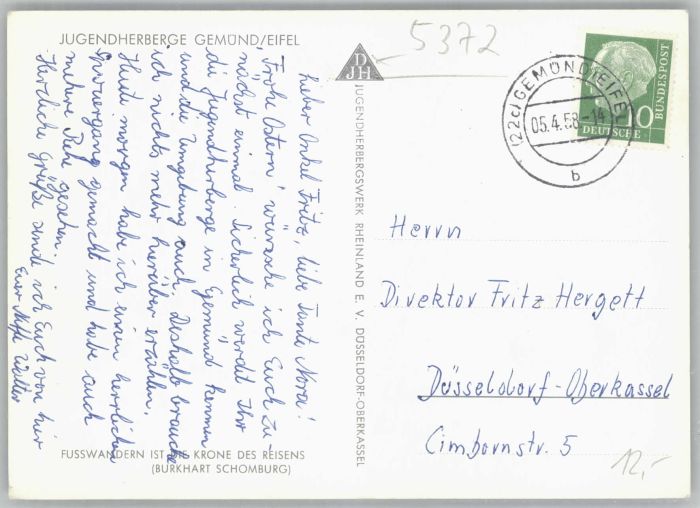 JUGENDHERBERGE GEMÜND/EIFEL
Lieber Onkel Fritz, liebe Tante Nora!
"Frohe Ostern" wünsche ich Euch zu-
nächst einmal. Sicherlich werdet Ihr
die Jugendherberge in Gemünd kennen
und die Umgebung auch. Deshalb brauche
ich nichts mehr hierüber erzählen.
Heute morgen habe ich einen herrlichen
Spaziergang gemacht und habe auch
mehrere Rehe gesehen.
Herzliche Grüße sende ich Euch von hier
Euer Neffe Walter
FUSSWANDERN IST DIE KRONE DES REISENS
(BURKHART SCHOMBURG)
D
JH
JUGENDHERBERGSWERK RHEINLAND E. V. DÜSSELDORF-OBERKASSEL
5372
(22c) GEMÜND (EIFEL)
05.4.58-14
b
10
DEUTSCHE
BUNDESPOST
Herrn
Direktor Fritz Hergett
Düsseldorf-Oberkassel
Cimbernstr. 5
12,-